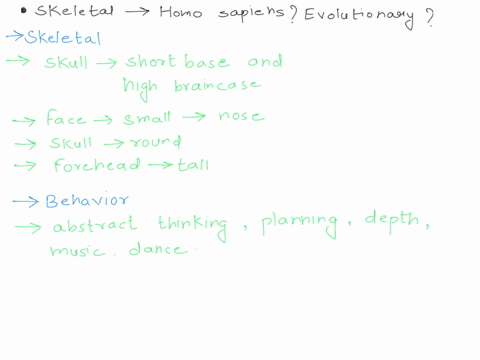 • Skeletal → Homo sapiens? Evolutionary?
→ Skeletal
→ Skull → short base and
high braincase
→ Face → small → nose
→ Skull → round
→ Forehead → tall
→ Behavior
→ abstract thinking, planning, depth,
music. dance.